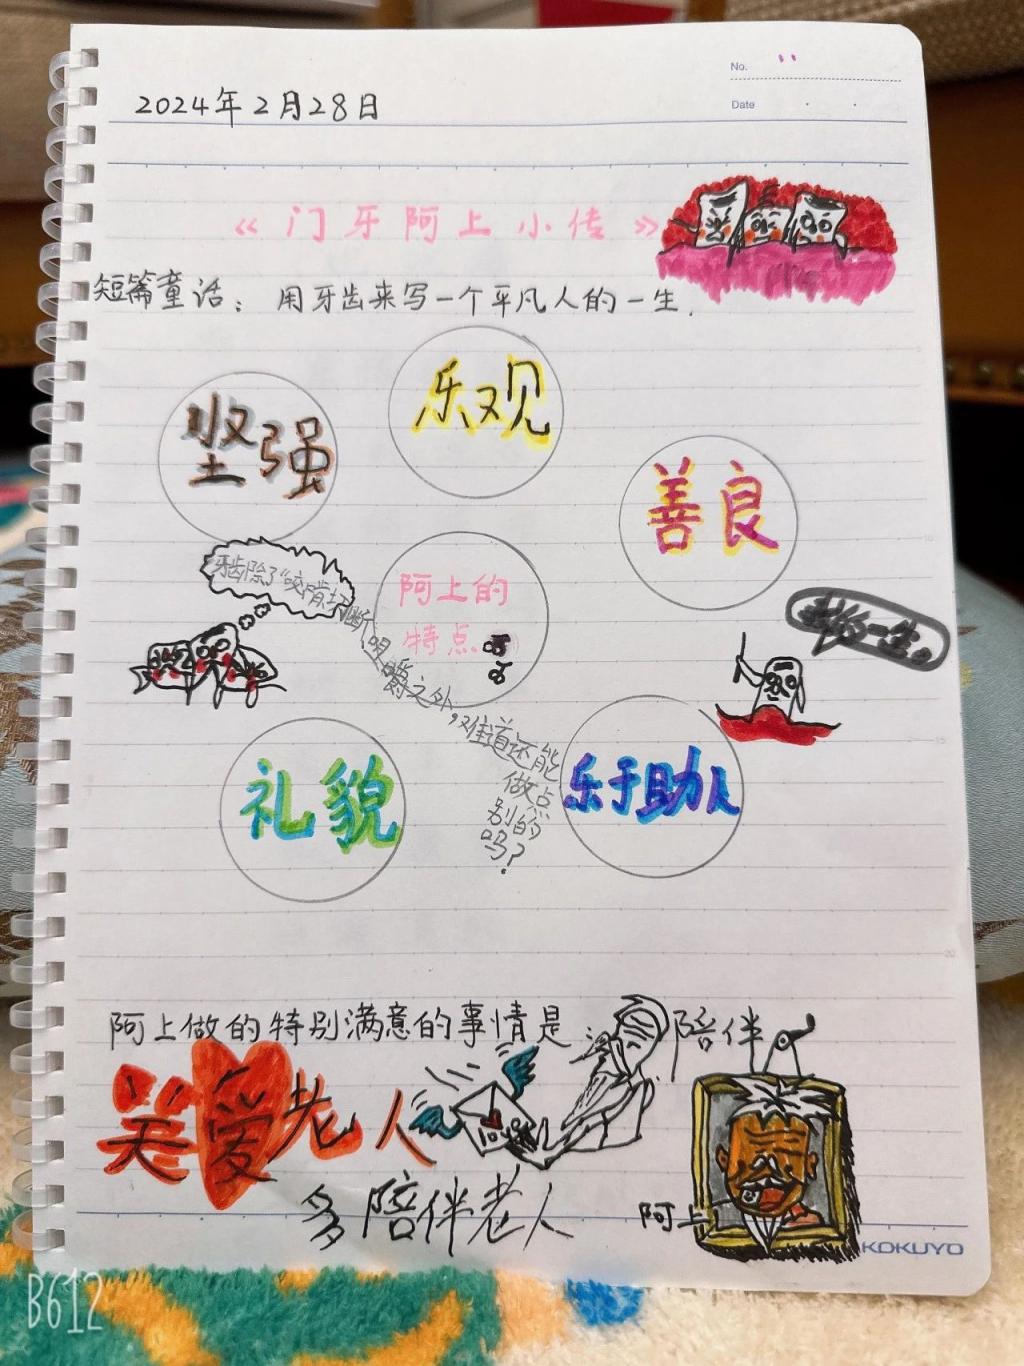 No.
2024年2月28日
Date
《门牙阿上小传》
短篇童话：用牙齿来写一个平凡人的一生.
乐观
坚强
善良
牙齿除了“咬啃切断咀嚼之外，难道还能
做点
别的
吗？
阿上的
特点
的一生。
礼貌
乐于助人
阿上做的特别满意的事情是：陪伴
关爱老人
多陪伴老人
阿上
KOKUYO
B612